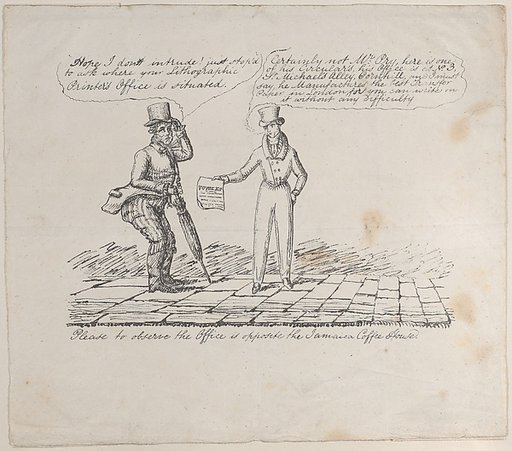 Hope I dont intrude! just stop'd
to ask where your Lithographic
Printers Office is situated.
Certainly not Mr. Pry, here is one
of his Circulars, his Office is at
St. Michaels Alley, Cornhill, and I must
say, he Manufactures the best Transfer
Paper in London, for you can write on
it without any Difficulty
Please to observe the Office is opposite the Jamaica Coffee House.